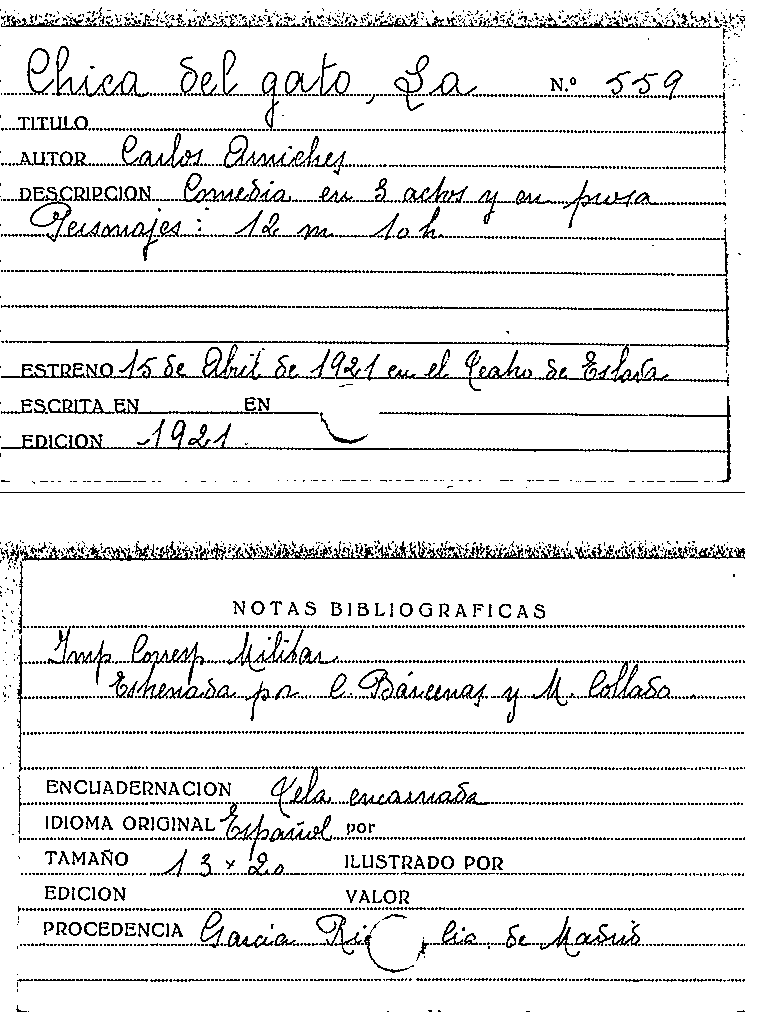 Chica del gato, La N.º 559
TITULO
AUTOR Carlos Arniches
DESCRIPCION Comedia en 3 actos y en prosa
Personajes: 12 m 10 h.
ESTRENO 15 de Abril de 1921 en el Teatro de Eslava
ESCRITA EN EN
EDICION 1921
NOTAS BIBLIOGRAFICAS
Imp Corresp Militar
Estrenada por C. Bárcenas y M. Collado.
ENCUADERNACION Tela encarnada
IDIOMA ORIGINAL Español por
TAMAÑO 13 x 20 ILUSTRADO POR
EDICION VALOR
PROCEDENCIA Garcia de Madrid